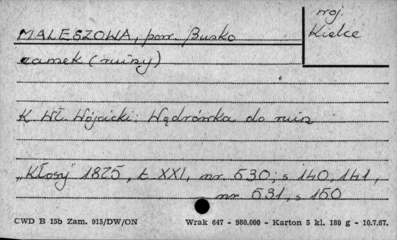 woj.
Kielce
MALESZOWA, pow. Busko
zamek (ruiny)
K. Wł. Wójcicki: Wędrówka do ruin
„Kłosy" 1875, t. XXI, nr. 530; s 140, 141,
nr 531, s 150
CWD B 15b Zam. 915/DW/ON Wrak 647 - 980.000 - Karton 5 kl. 180 g - 10.7.67.